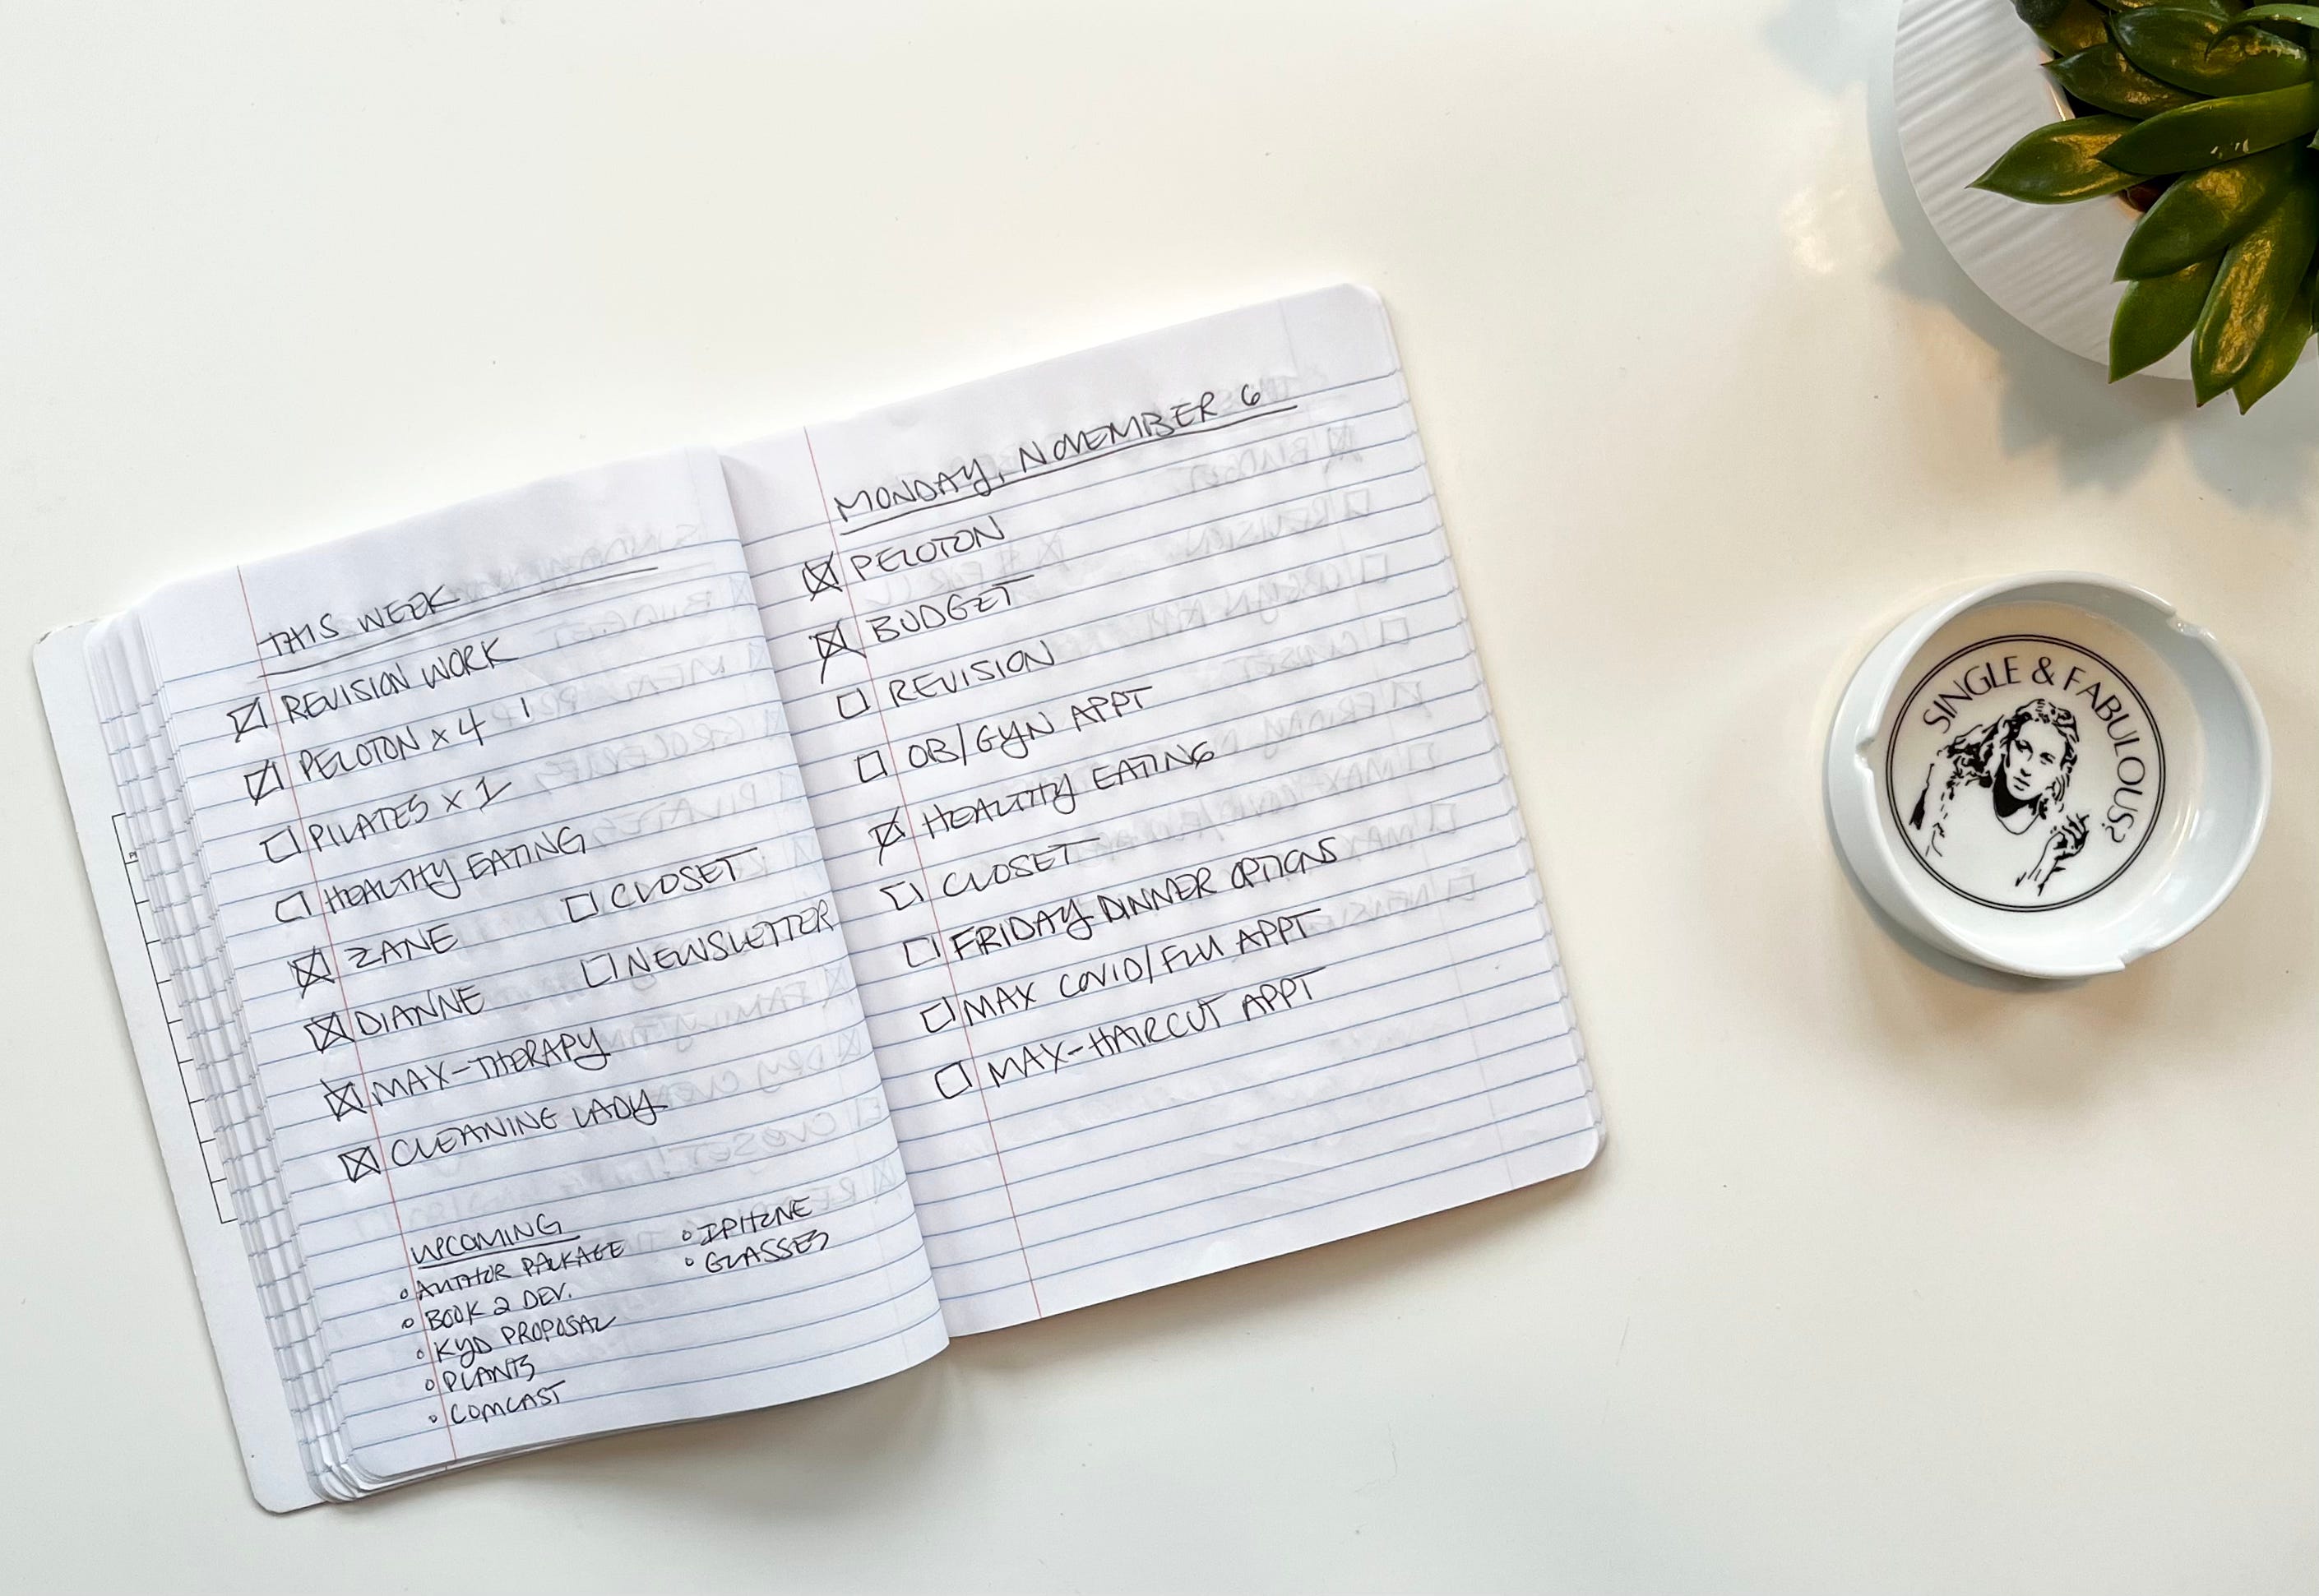 THIS WEEK
REVISION WORK
PELOTON x 4 1
PILATES x 1
HEALTHY EATING
ZANE
CLOSET
DIANNE
NEWSLETTER
MAX-THERAPY
CLEANING LADY
UPCOMING
AUTHOR PACKAGE
BOOK 2 DEV.
KYD PROPOSAL
PLANTS
COMCAST
IPHONE
GLASSES
MONDAY, NOVEMBER 6
PELOTON
BUDGET
REVISION
OB/GYN APPT
HEALTHY EATING
CLOSET
FRIDAY DINNER OPTIONS
MAX COVID/FLU APPT
MAX-HAIRCUT APPT
SINGLE & FABULOUS?